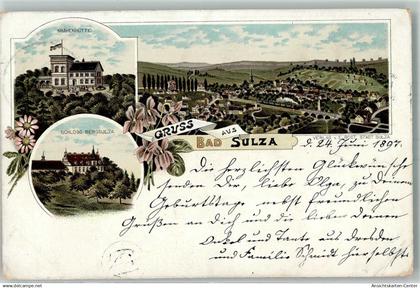 KRÄHENHÜTTE
SCHLOSS BERGSULZA
GRUSS
AUS
BAD SULZA
VERLAG V.
STADT SULZA.
d. 24. Juni 1897.
Die herzlichsten Glückwünsche
senden Dir, liebe Olga, zu Deinem
Geburtstage nebst freundlichen
Grüßen an Dich und die lieben Deinen
Onkel und Tante aus Dresden
und Familie Schmidt hierselbst
© Ansichtskarten-Center